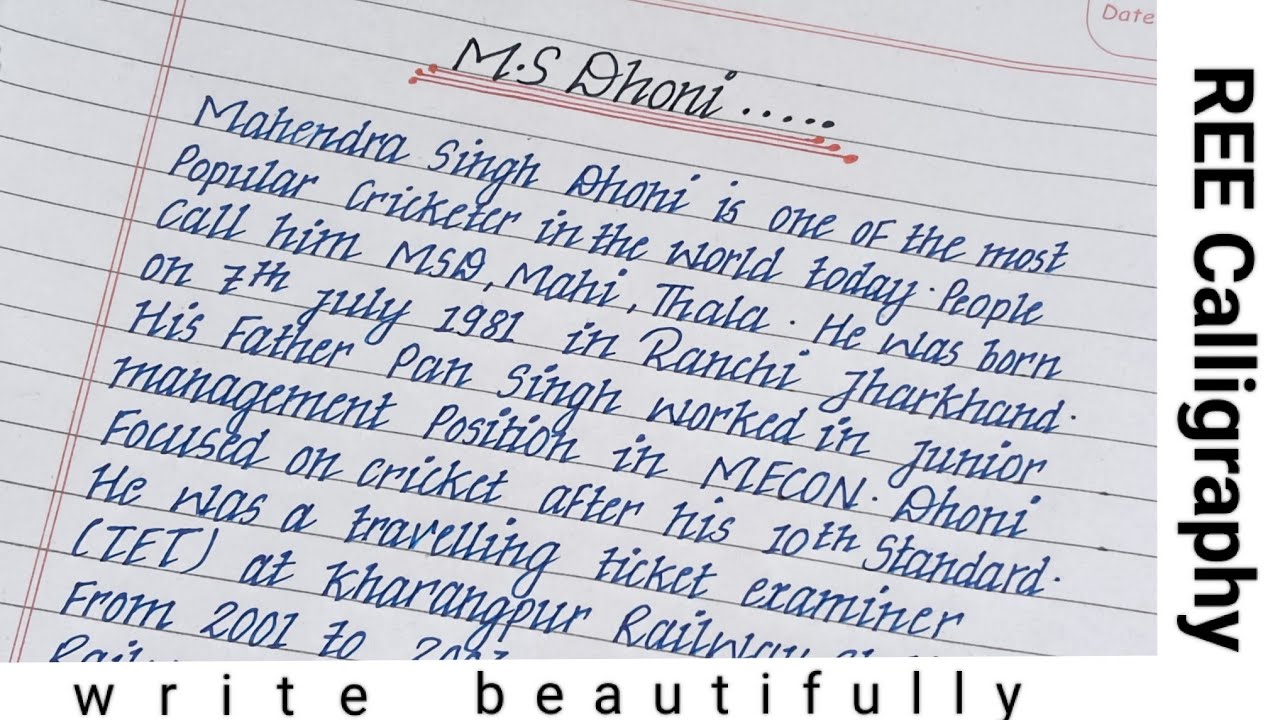 Date
M.S Dhoni.....
Mahendra Singh Dhoni is one of the most
Popular Cricketer in the world today. People
call him MSD, Mahi, Thala. He was born
on 7th july 1981 in Ranchi Jharkhand.
His Father Pan Singh worked in junior
management Position in MECON. Dhoni
Focused on cricket after his 10th Standard.
He was a travelling ticket examiner
(TET) at Kharangpur Railway
From 2001 to
REE Calligraphy
write beautifully